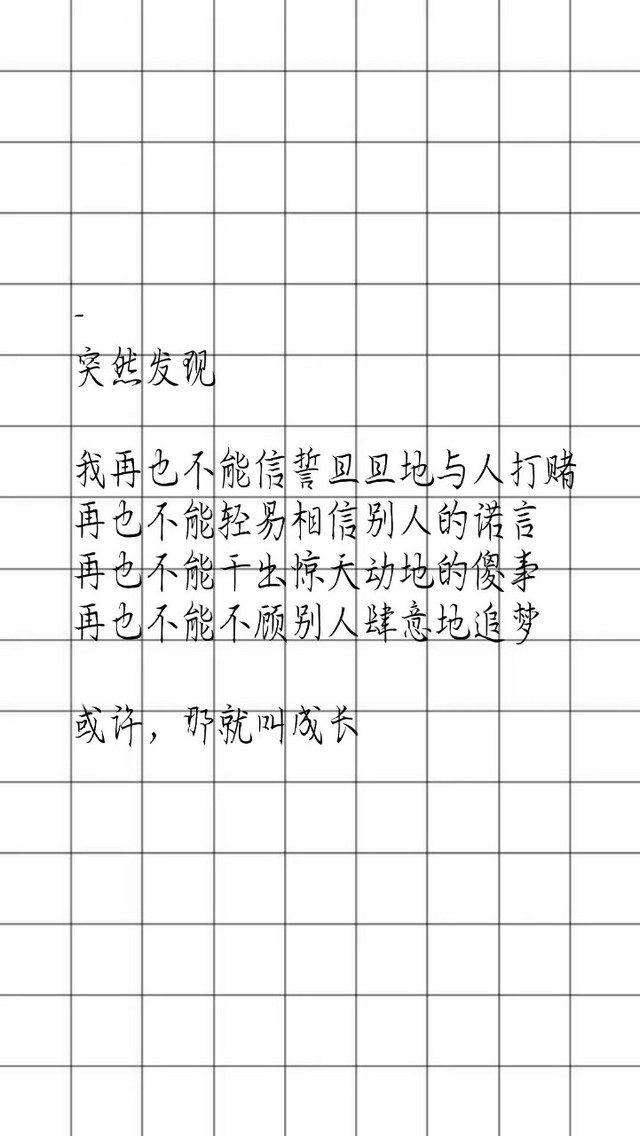 -
突然发现
我再也不能信誓旦旦地与人打赌
再也不能轻易相信别人的诺言
再也不能干出惊天动地的傻事
再也不能不顾别人肆意地追梦
或许，那就叫成长